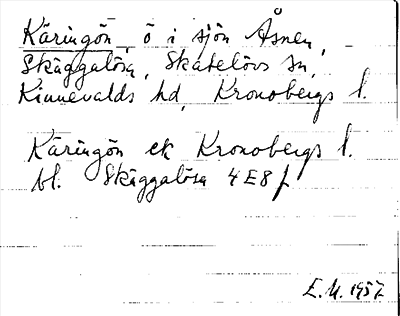 Käringön, ö i sjön Åsnen,
Skäggalösa, Skatelövs sn,
Kinnevalds hd, Kronobergs l.
Käringön ek Kronobergs l.
bl. Skäggalösa 4E8f
E.U. 1957